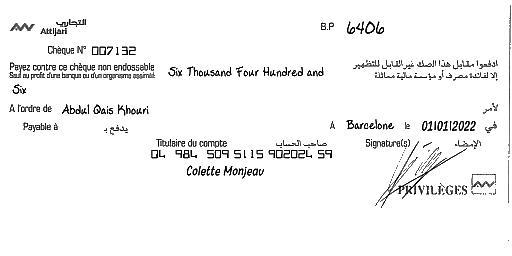 التجاري
Attijari
B.P 6406
Chèque N° 007132
Payez contre ce chèque non endossable
Seul au profit d'une banque ou d'un organisme assimilé
Six Thousand Four Hundred and
Six
ادفعوا مقابل هذا الصك غير القابل للتظهير
إلا لفائدة مصرف أو مؤسسة مالية مماثلة
A l'ordre de Abdul Qais Khouri لأمر
Payable à يدفع بـ A Barcelone le 01/01/2022 في
Titulaire du compte صاحب الحساب Signature(s) الإمضاء
04 984 509 5115 902024 59
Colette Monjeau
PRIVILÈGES